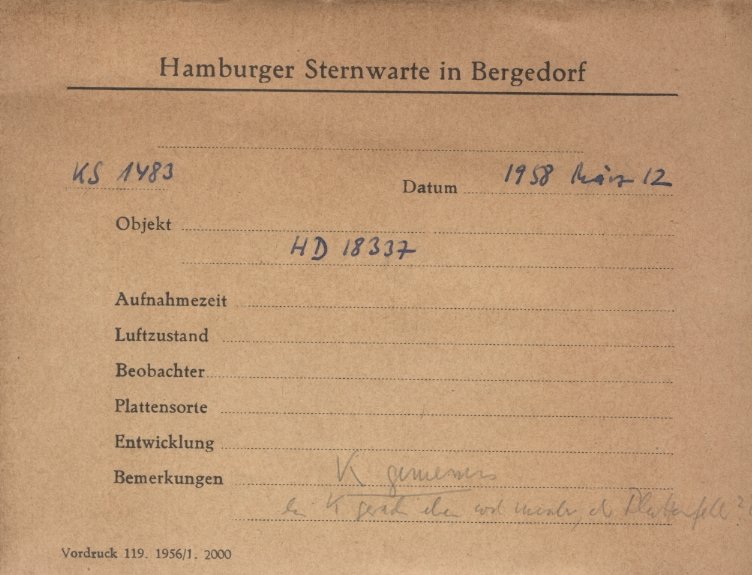 Hamburger Sternwarte in Bergedorf
KS 1483
Datum 1958 März 12
Objekt
HD 18337
Aufnahmezeit
Luftzustand
Beobachter
Plattensorte
Entwicklung
Bemerkungen K gemessen
K gerade eben
Vordruck 119. 1956/1. 2000